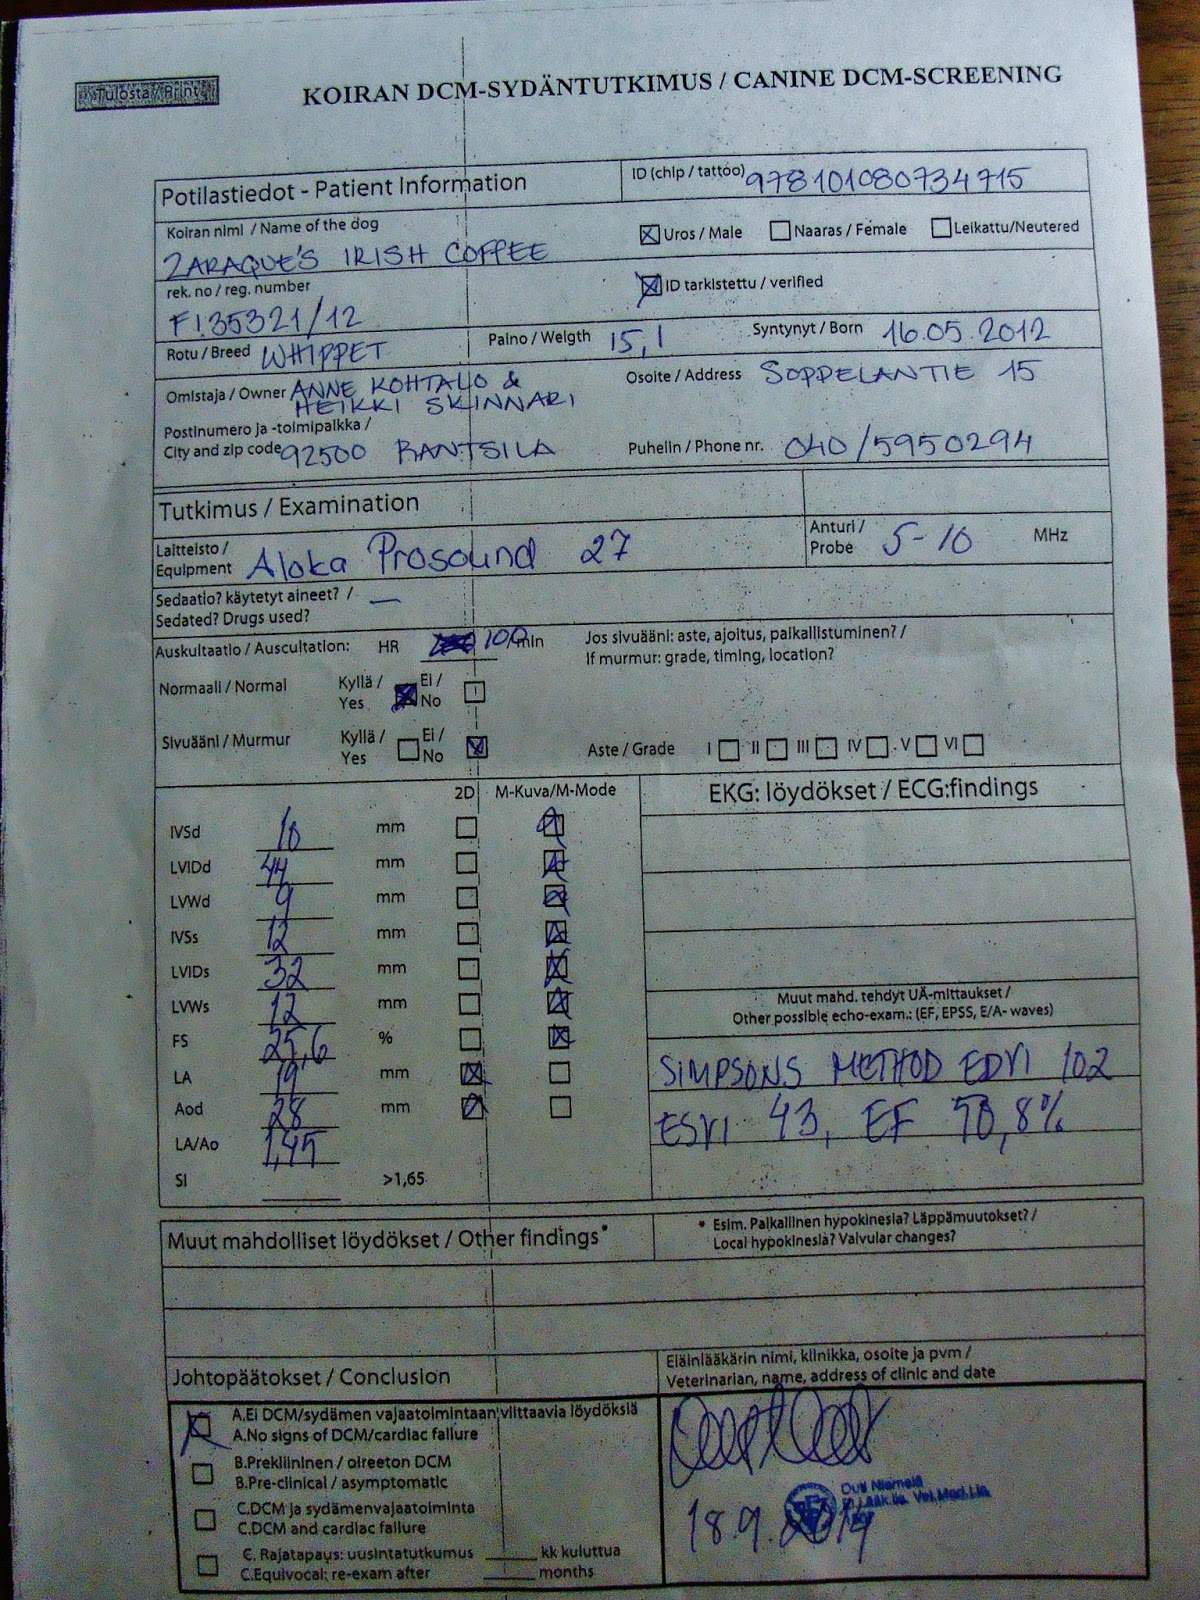 Tulosta / Print
KOIRAN DCM-SYDÄNTUTKIMUS / CANINE DCM-SCREENING
Potilastiedot - Patient Information
ID (chip / tattoo) 978101080734715
Koiran nimi / Name of the dog
ZARAQUE'S IRISH COFFEE
Uros / Male Naaras / Female Leikattu/Neutered
ID tarkistettu / verified
rek. no / reg. number
FI35321/12
Rotu / Breed WHIPPET Paino / Weigth 15,1 Syntynyt / Born 16.05.2012
Omistaja / Owner ANNE KOHTALO &
HEIKKI SKINNARI
Osoite / Address SOPPELANTIE 15
Postinumero ja -toimipaikka /
City and zip code 92500 RANTSILA Puhelin / Phone nr. 040/5950294
Tutkimus / Examination
Laitteisto /
Equipment Aloka Prosound 27
Anturi /
Probe 5-10 MHz
Sedaatio? käytetyt aineet? / —
Sedated? Drugs used?
Auskultaatio / Auscultation: HR 100/min
Jos sivuääni: aste, ajoitus, paikallistuminen? /
If murmur: grade, timing, location?
Normaali / Normal Kyllä / Yes Ei / No
Sivuääni / Murmur Kyllä / Yes Ei / No
Aste / Grade I II III IV V VI
2D M-Kuva/M-Mode
EKG: löydökset / ECG:findings
IVSd 10 mm
LVIDd 44 mm
LVWd 9 mm
IVSs 12 mm
LVIDs 32 mm
LVWs 12 mm
FS 25,6 %
LA 19 mm
Aod 28 mm
LA/Ao 1,45
SI >1,65
Muut mahd. tehdyt UÄ-mittaukset /
Other possible echo-exam.: (EF, EPSS, E/A- waves)
SIMPSONS METHOD EDVI 102
ESVI 43, EF 50,8%
Muut mahdolliset löydökset / Other findings*
* Esim. Paikallinen hypokinesia? Läppämuutokset? /
Local hypokinesia? Valvular changes?
Johtopäätökset / Conclusion
Eläinlääkärin nimi, klinikka, osoite ja pvm /
Veterinarian, name, address of clinic and date
A.Ei DCM/sydämen vajaatoimintaan viittaavia löydöksiä
A.No signs of DCM/cardiac failure
B.Prekliininen / oireeton DCM
B.Pre-clinical / asymptomatic
C.DCM ja sydämenvajaatoiminta
C.DCM and cardiac failure
C. Rajatapaus: uusintatutkumus ______ kk kuluttua
C.Equivocal: re-exam after ______ months
Outi Niemelä
18.9.2014